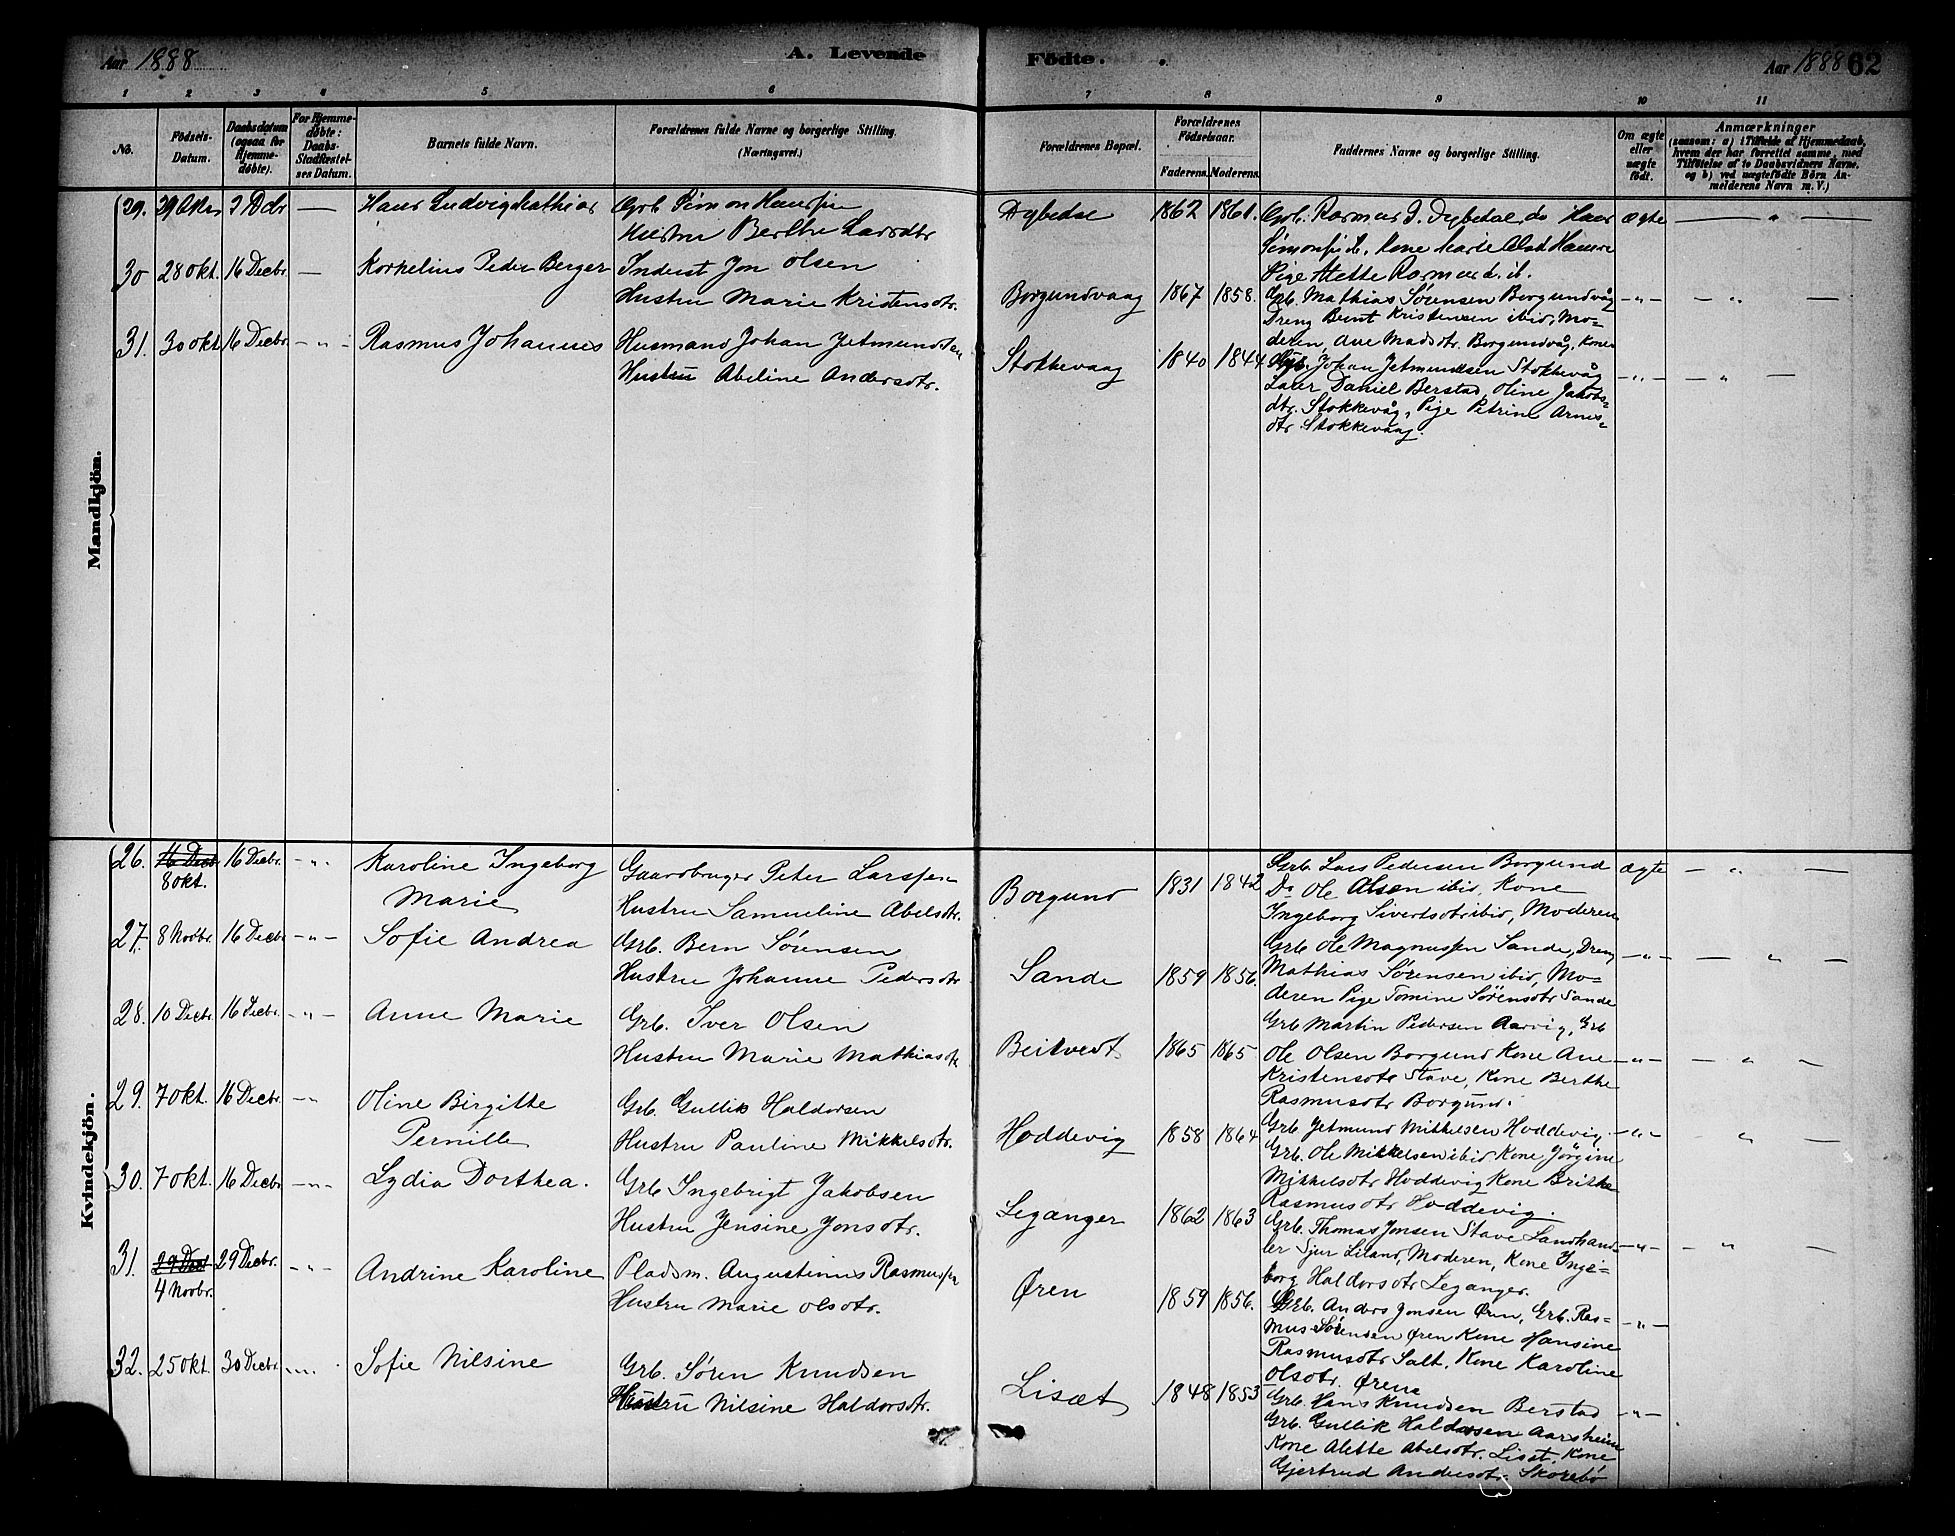 Aar 1888
A. Levende
Födte.
Aar 1888 62
1 2 3 4 5 6 7 8 9 10 11
No.
Födsels-Datum.
Daabsdatum (ogsaa for Hjemme-döbte).
For Hjemme-döbte: Daabs-Stadfæstel-ses Datum.
Barnets fulde Navn.
Forældrenes fulde Navne og borgerlige Stilling. (Næringsvei.)
Forældrenes Bopæl.
Forældrenes Födselsaar.
Faderens. Moderens.
Faddernes Navne og borgerlige Stilling.
Om ægte eller uægte födt.
Anmærkninger
(saasom: a) i Tilfælde af Hjemmedaab, hvem der har forrettet samme, med Tilföielse af to Daabsvidners Navne. og b) ved uægtefödte Börn An-melderens Navn m. V.)
Mandkjön.
29. 29 Okt 2 Dcbr — Hans Ludvig Mathias Grb. Simon Hanssen
Hustru Berthe Larsdtr
Dybedal 1862 1861. Grb. Rasmus D. Dybedal, do Hans
Simonss ib. Kone Marie
Pige Mette Rasmusd. ib. ægte — " —
30 28 okt. 16 Decbr. — Kornelius Peder Berger Inderst Jon Olsen
Hustru Marie Kristensdtr.
Borgundvaag 1867 1858. Grb. Mathias Sørensen Borgundvåg
Dreng Bernt Kristensen ibid, Mo-
deren, Ane Madsdtr. Borgundvåg, Kone -"- — " —
31. 30 okt 16 Decbr. - " - Rasmus Johannes Husmand Johan Jetmundsen
Hustru Abeline Andersdtr.
Stokkevaag 1840 1844 Grb. Johan Jetmundsen Stokkevåg
Lærer Daniel Berstad, Oline Jakobs-
dtr. Stokkevåg, Pige Petrine Arnes-
dtr. Stokkevaag. -"- — " —
Kvindekjön.
26. 16 Decb. 8 okt. 16 Decbr. - " - Karoline Ingeborg
Marie
Gaardbruger Peter Larssen
Hustru Samueline Abelsdtr.
Borgund 1831 1842 Grb. Lars Pedersen Borgund
Do Ole Olsen ibid, Kone
Ingeborg Sivertsdtr ibid, Moderen ægte — " —
27. 8 Novbr. 16 Decbr - " - Sofie Andrea Grb. Bern Sørensen
Hustru Johanne Pedersdtr
Sande 1859 1856. Grb Ole Magnussen Sande, Dreng
Mathias Sørensen ibid, Mo-
deren Pige Tomine Sørensdtr Sande -"- — " —
28. 10 Decbr. 16 Decbr. - " - Anne Marie Grb. Iver Olsen
Hustru Marie Mathiasdtr
Beitvedt 1865 1865 Grb Martin Pedersen Aarvig, Grb
Ole Olsen Borgund Kone Ane
Kristensdtr Stave, Kone Berthe
Rasmusdtr Borgund. -"- — " —
29. 7 okt. 16 Decbr. - " Oline Birgitte
Pernille
Grb. Gullik Haldorsen
Hustru Pauline Mikkelsdtr.
Hoddevig 1858 1864 Grb Jetmund Mikkelsen Hoddevig
Grb. Ole Mikkelsen ibid Kone Jörgine
Mikkelsdtr Hoddevig Kone Brithe
Rasmusdtr Hoddevig. -"- " —
30. 7 okt. 16 Decbr - " - Lydia Dorthea. Grb Ingebrigt Jakobsen
Hustru Jensine Jonsdtr.
Leganger 1862 1863 Grb. Thomas Jonsen Stave Landhand-
ler Sjur Liland, Moderen, Kone Inge-
borg Haldorsdtr Leganger. -"- — " —
31. 29 Dec 4 Novbr. 29 Decbr. - " - Andrine Karoline Pladsm. Augustinus Rasmussen
Hustru Marie Olsdtr.
Øren 1859 1856. Grb. Anders Jonsen Øren, Grb. Ras-
mus Sørensen Øren Kone Hansine
Rasmusdtr Salt, Kone Karoline
Olsdtr. Ørene -"-
32. 25 okt. 30 Decbr - " - Sofie Nilsine Grb. Søren Knudsen
Hustru Nilsine Haldorsdtr.
Lisæt 1848 1853 Grb. Hans Knudsen Berstad
Grb. Gullik Haldorsen Aarsheim
Kone Alette Abelsdtr. Liset, Kone
Gjertrud Andersdtr. Skorebø -"-